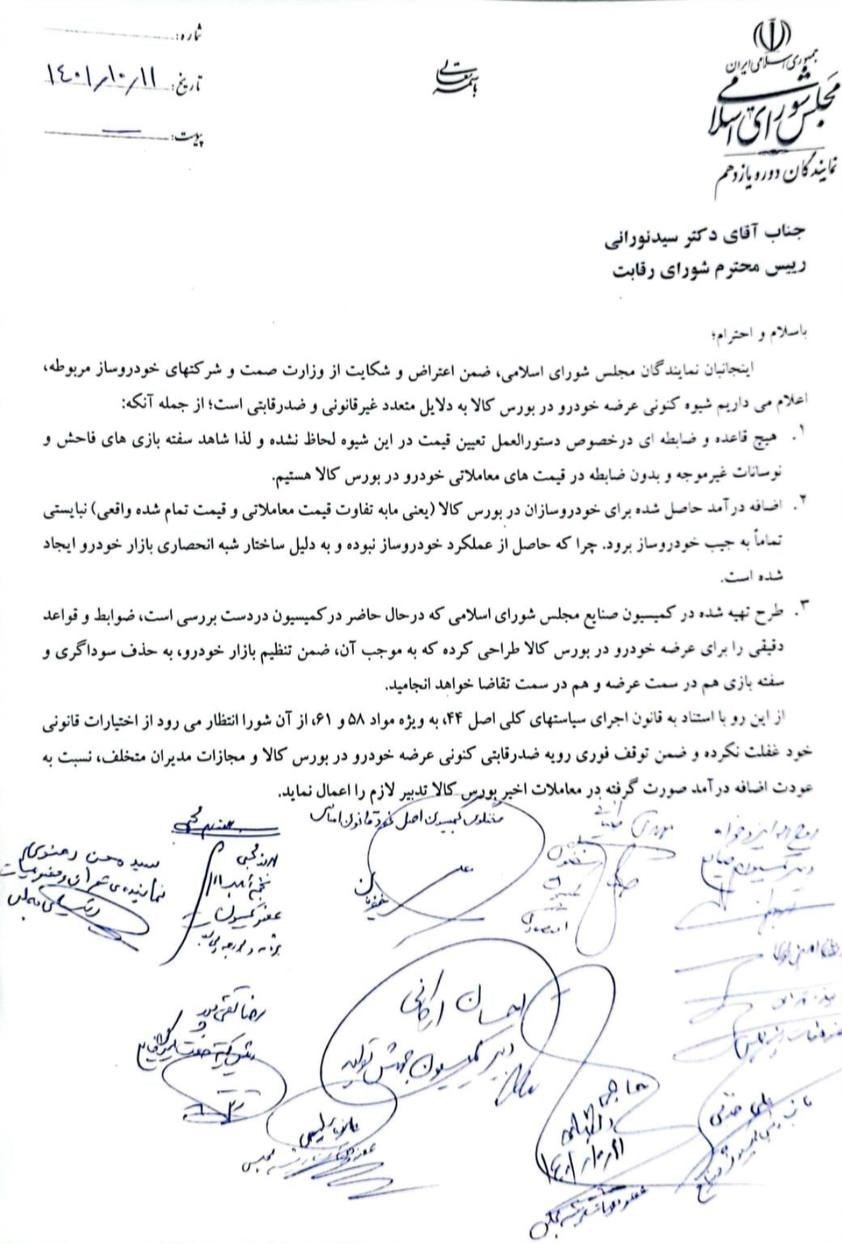 باسمه تعالی
جمهوری اسلامی ایران
مجلس شورای اسلامی
نمایندگان دوره یازدهم
شماره:
تاریخ: ۱۴۰۱/۱۰/۱۱
پیوست:
جناب آقای دکتر سیدنورانی
رییس محترم شورای رقابت
باسلام و احترام؛
اینجانبان نمایندگان مجلس شورای اسلامی، ضمن اعتراض و شکایت از وزارت صمت و شرکتهای خودروساز مربوطه،
اعلام می داریم شیوه کنونی عرضه خودرو در بورس کالا به دلایل متعدد غیرقانونی و ضدرقابتی است؛ از جمله آنکه:
۱. هیچ قاعده و ضابطه ای درخصوص دستورالعمل تعیین قیمت در این شیوه لحاظ نشده و لذا شاهد سفته بازی های فاحش و
نوسانات غیرموجه و بدون ضابطه در قیمت های معاملاتی خودرو در بورس کالا هستیم.
۲. اضافه درآمد حاصل شده برای خودروسازان در بورس کالا (یعنی مابه تفاوت قیمت معاملاتی و قیمت تمام شده واقعی) نبایستی
تماماً به جیب خودروساز برود. چرا که حاصل از عملکرد خودروساز نبوده و به دلیل ساختار شبه انحصاری بازار خودرو ایجاد
شده است.
۳. طرح تهیه شده در کمیسیون صنایع مجلس شورای اسلامی که درحال حاضر درکمیسیون دردست بررسی است، ضوابط و قواعد
دقیقی را برای عرضه خودرو در بورس کالا طراحی کرده که به موجب آن، ضمن تنظیم بازار خودرو، به حذف سوداگری و
سفته بازی هم در سمت عرضه و هم در سمت تقاضا خواهد انجامید.
از این رو با استناد به قانون اجرای سیاستهای کلی اصل ۴۴، به ویژه مواد ۵۸ و ۶۱، از آن شورا انتظار می رود از اختیارات قانونی
خود غفلت نکرده و ضمن توقف فوری رویه ضدرقابتی کنونی عرضه خودرو در بورس کالا و مجازات مدیران متخلف، نسبت به
عودت اضافه درآمد صورت گرفته در معاملات اخیر بورس کالا تدبیر لازم را اعمال نماید.
روح اله ایزدخواه
سید محسن دهنوی
نماینده تهران
عضو کمیسیون
احسان ارکانی
دبیر کمیسیون جهش تولید
رضا تقی پور
علی جدی